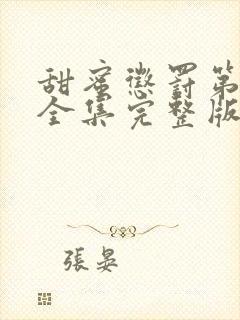 甜蜜懲罰第
全集完整版
張晏